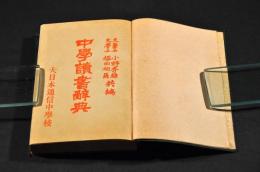 文學士 小野秀雄
文學士 塩田刎區 共編
中學讀書辭典
大日本通信中學校